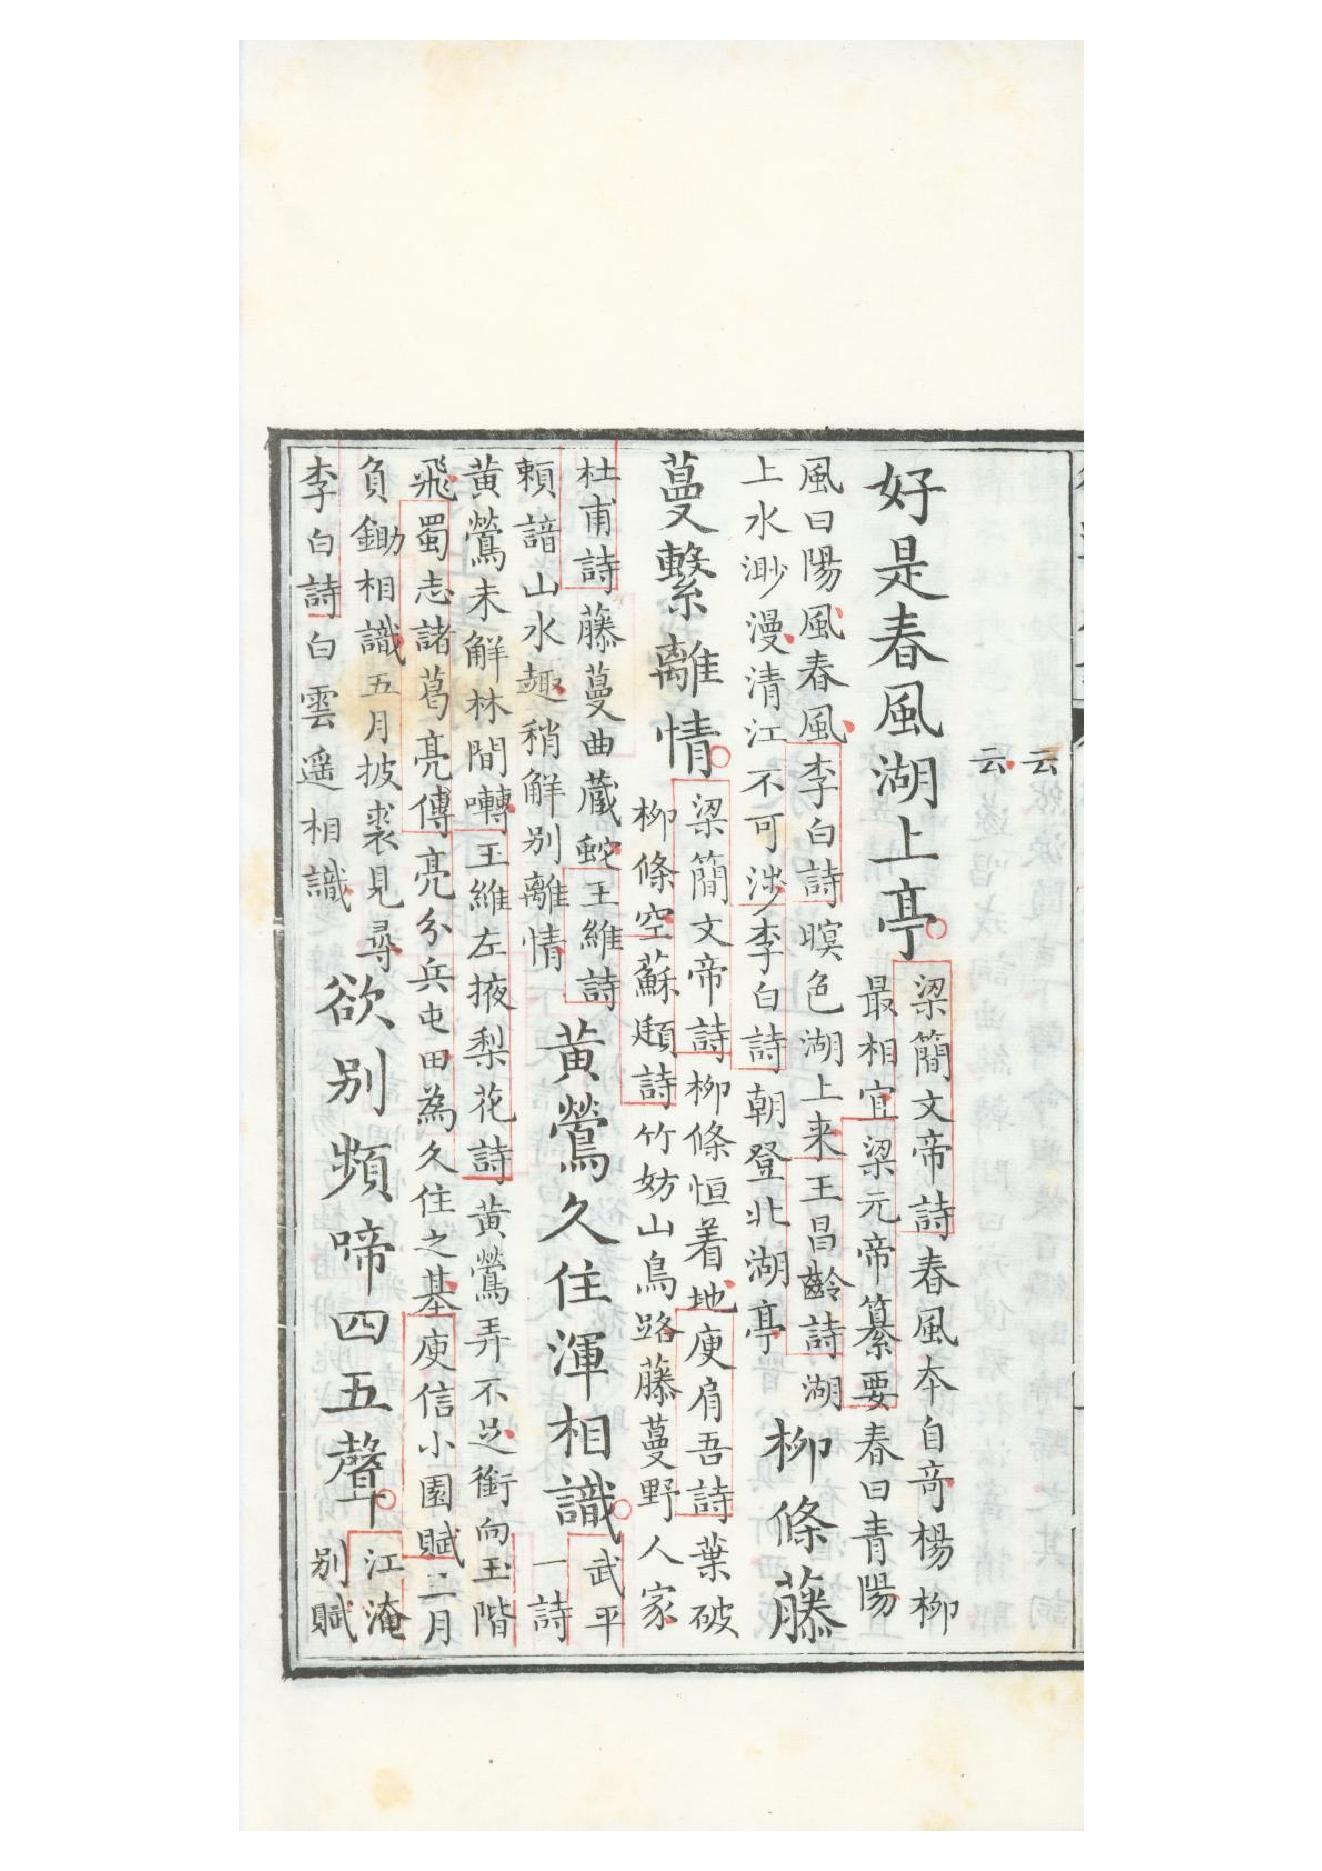 云
云
好是春風湖上亭
梁簡文帝詩春風本自奇楊柳
最相宜梁元帝纂要春曰青陽
風曰陽風春風李白詩暝色湖上来王昌齡詩湖
上水渺漫清江不可涉李白詩朝登北湖亭
柳條藤
蔓繫離情
梁簡文帝詩柳條恒着地庾肩吾詩葉破
柳條空蘇頲詩竹妨山鳥路藤蔓野人家
杜甫詩藤蔓曲蔵蛇王維詩
頼諳山水趣稍解别離情
黄鶯久住渾相識
武平
一詩
黄鶯未解林間囀王維左掖梨花詩黄鶯弄不足銜向玉階
飛蜀志諸葛亮傳亮分兵屯田為久住之基庾信小園賦二月
負鋤相識五月披裘見尋
李白詩白雲遥相識
欲别頻啼四五聲
江淹
别賦